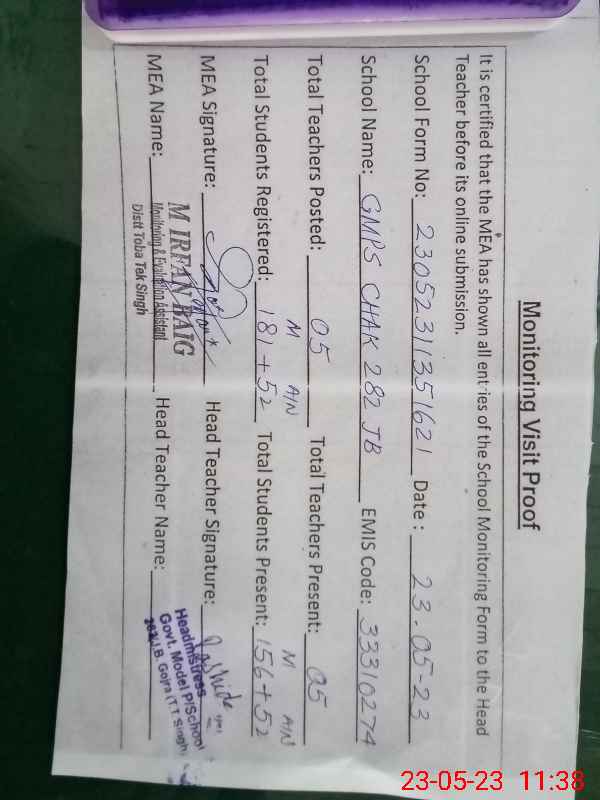 Monitoring Visit Proof
It is certified that the MEA has shown all entries of the School Monitoring Form to the Head
Teacher before its online submission.
School Form No: 23052311351621 Date : 23.05-23
School Name: GMPS CHAK 282 JB EMIS Code: 33310274
Total Teachers Posted: 05 Total Teachers Present: 05
M A/N M A/N
Total Students Registered: 181+52 Total Students Present: 156+52
MEA Signature: Head Teacher Signature:
MEA Name: M IRFAN BAIG Head Teacher Name:
Monitoring & Evaluation Assistant
Distt Toba Tek Singh
Headmistress
Govt. Model P/School
282/J.B. Gojra (T.T. Singh)
23-05-23 11:38